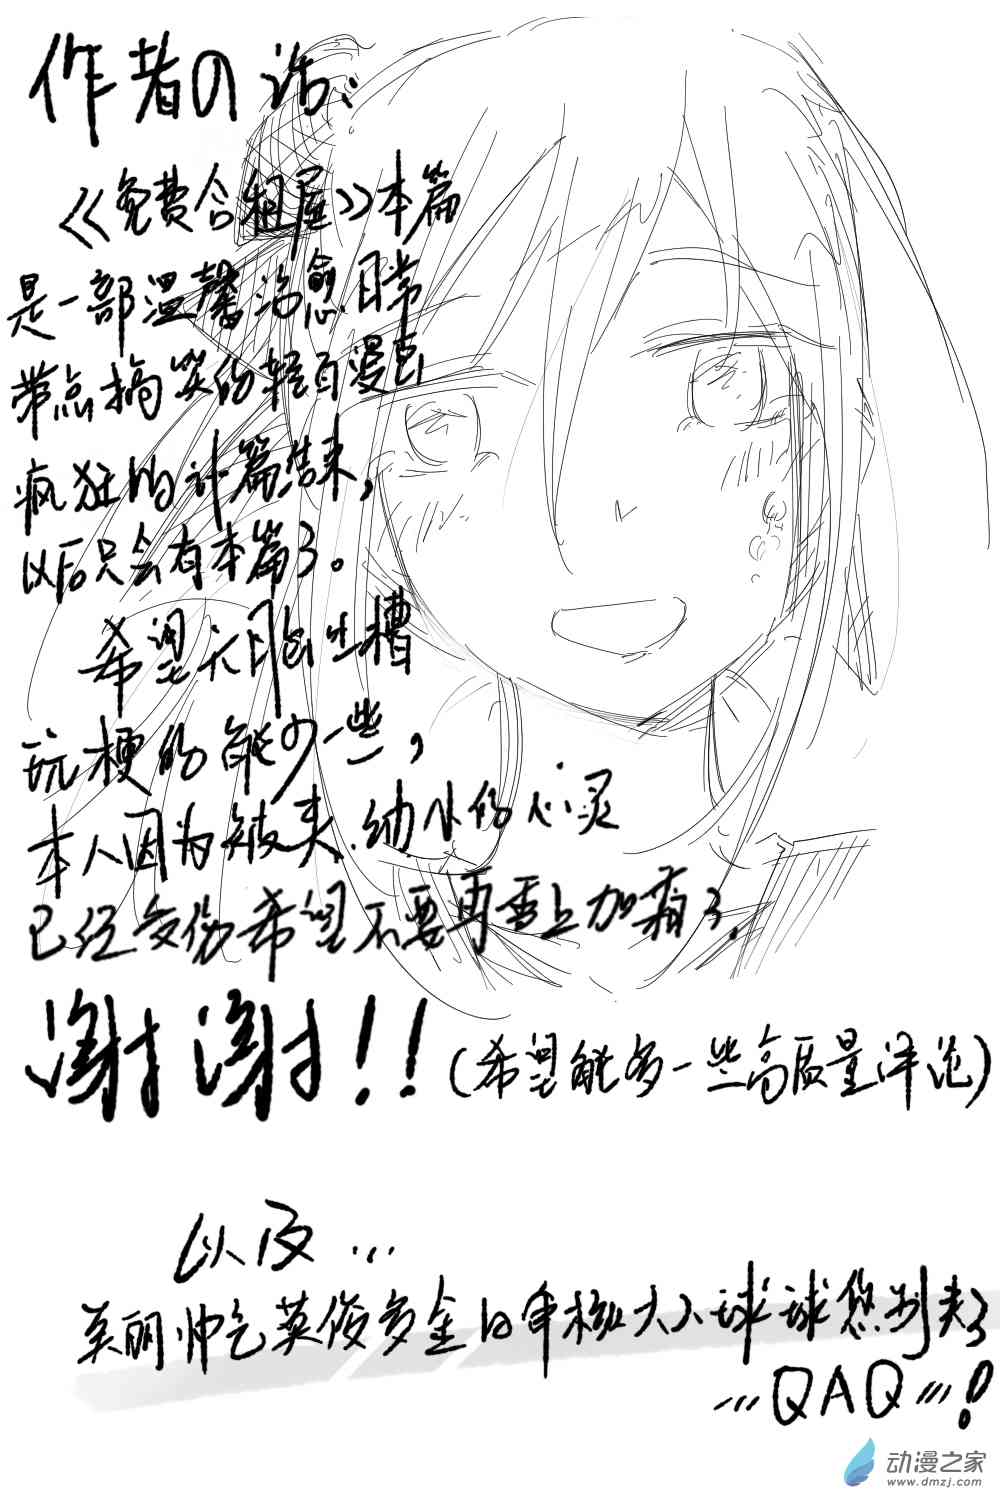 作者の话：
《免费合租屋》本篇
是一部温馨治愈日常
带点搞笑的轻百漫画
疯狂的计篇结束，
以后只会有本篇了。
希望大胆吐槽
玩梗的能少一些，
本人因为被夹.幼小的心灵
已经受伤希望不要再雪上加霜了.
谢谢!!(希望能多一些高质量评论)
以及...
美丽帅气英俊多金的审核大人球球您别夹了
...QAQ...!
动漫之家
www.dmzj.com